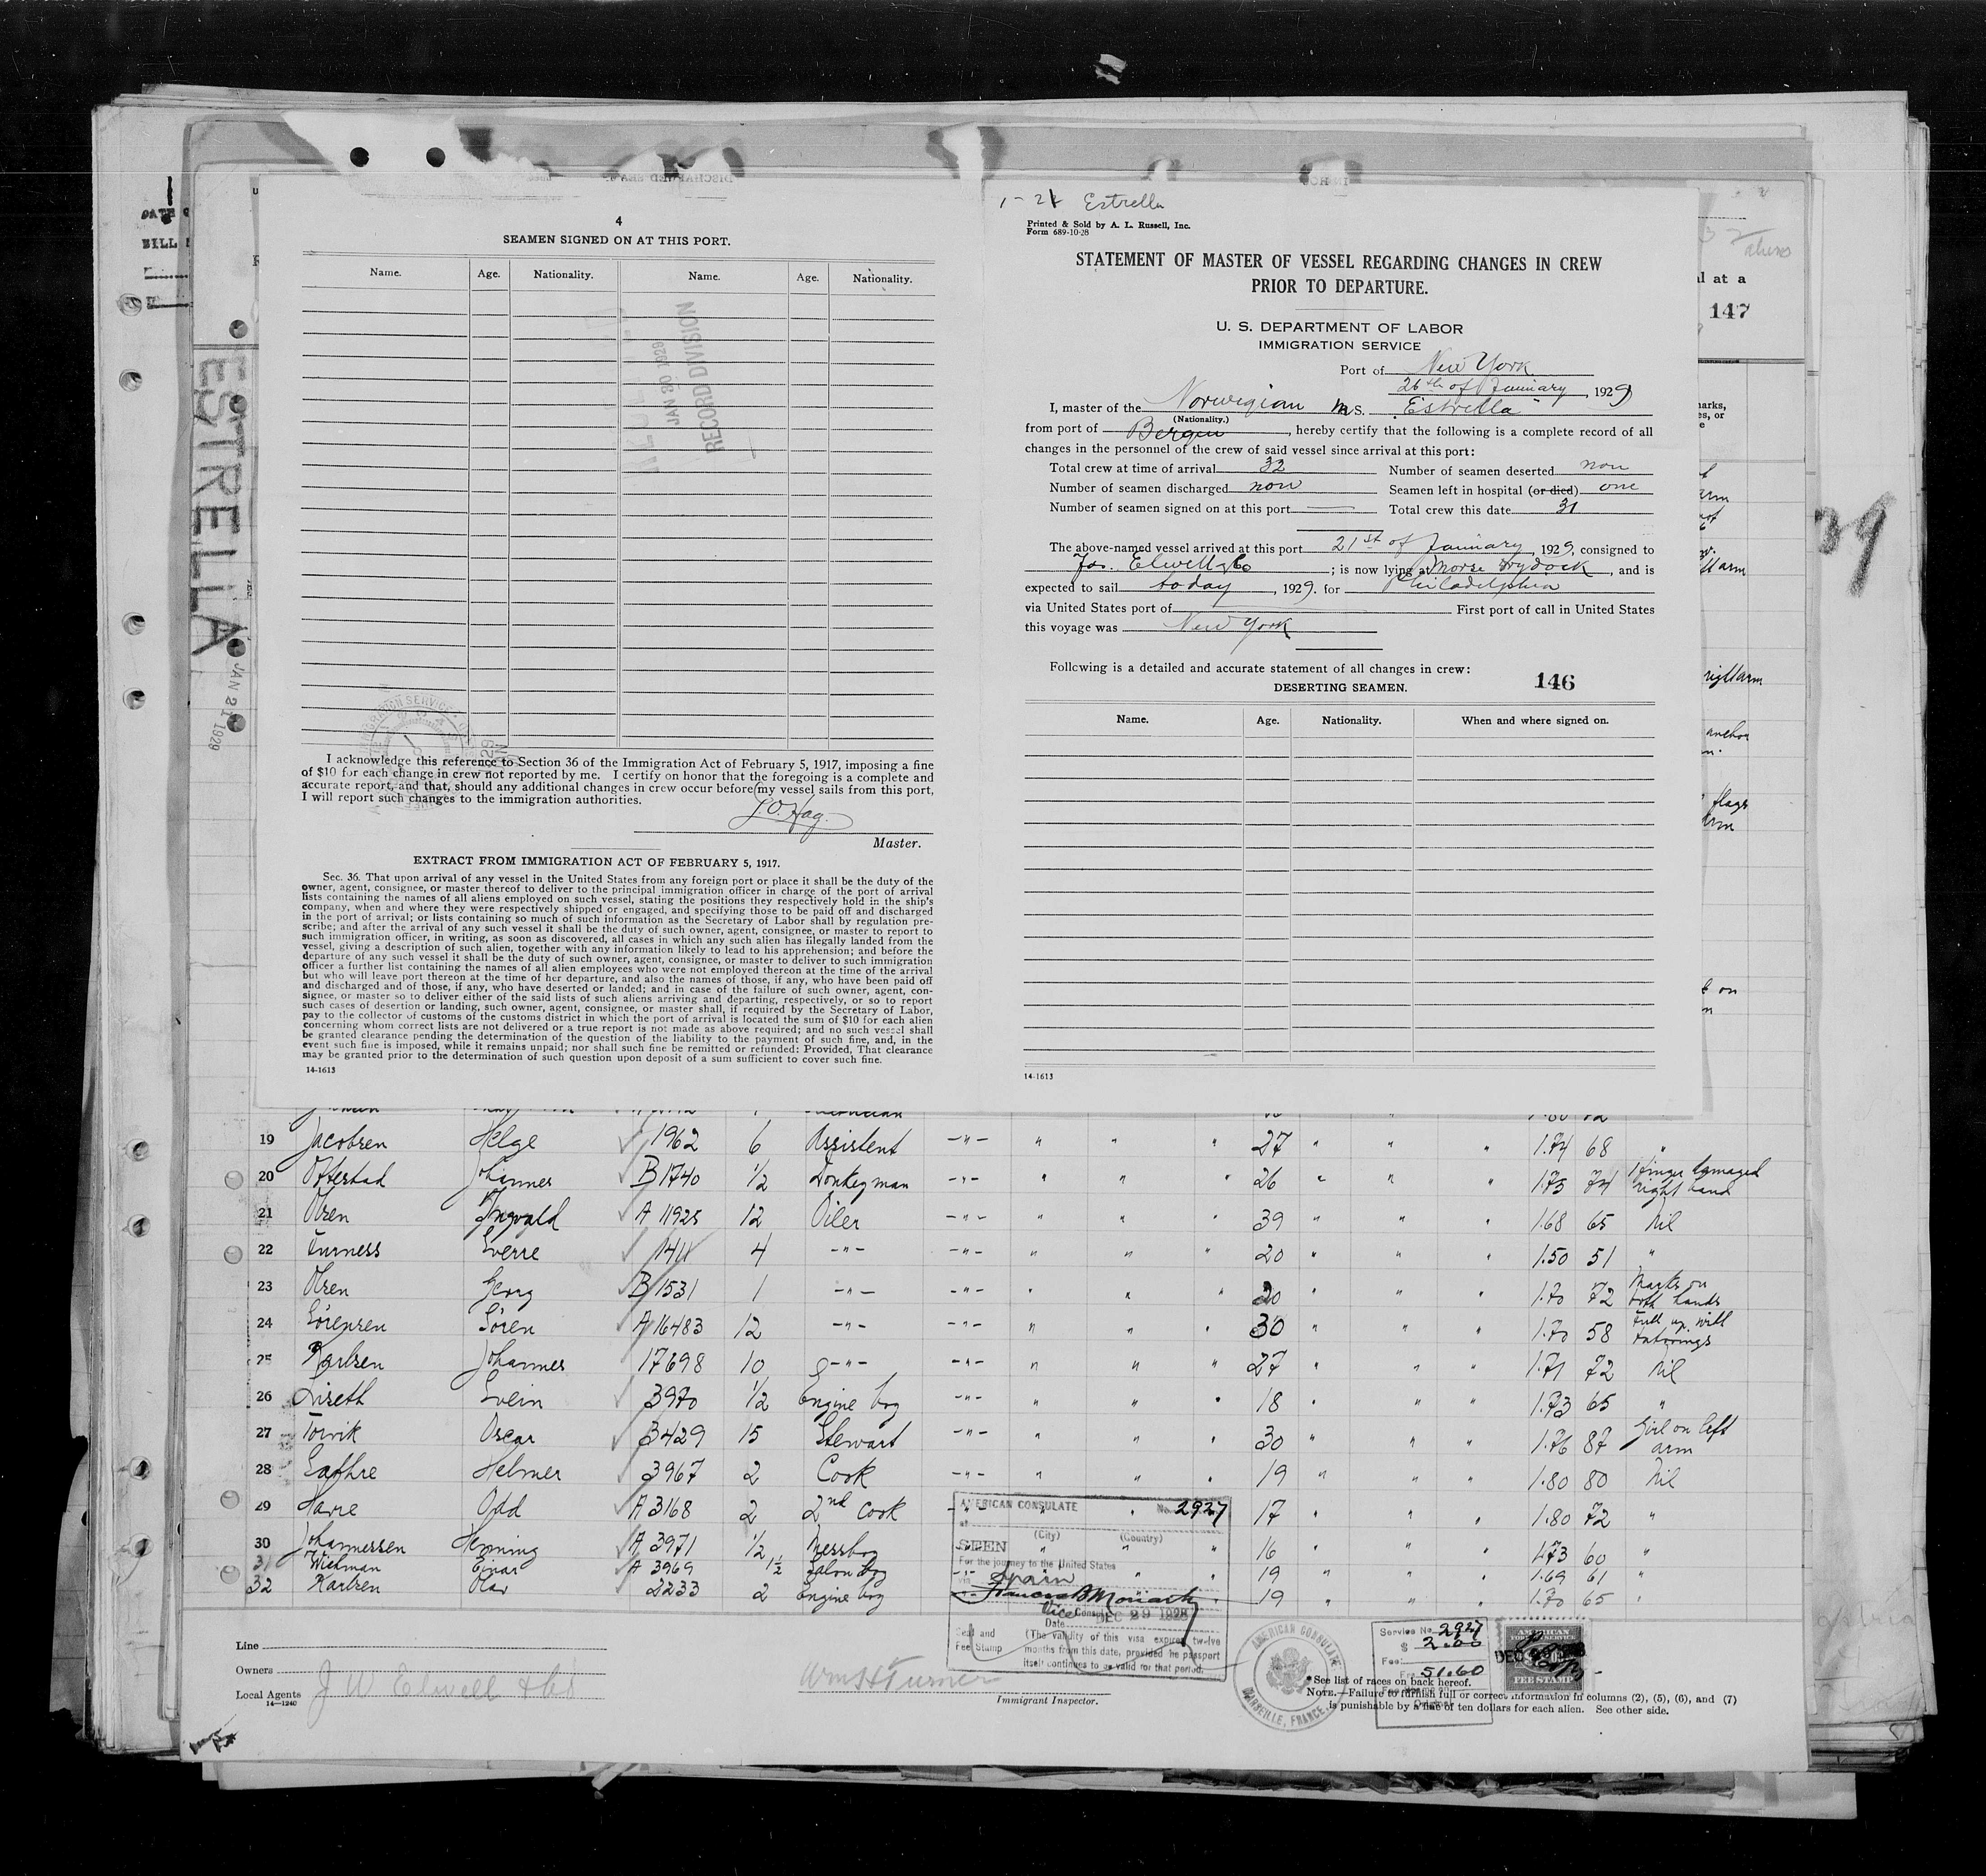 4
SEAMEN SIGNED ON AT THIS PORT.
Name. Age. Nationality. Name. Age. Nationality.
JAN 30 1929
RECORD DIVISION
I acknowledge this reference to Section 36 of the Immigration Act of February 5, 1917, imposing a fine
of $10 for each change in crew not reported by me. I certify on honor that the foregoing is a complete and
accurate report, and that, should any additional changes in crew occur before my vessel sails from this port,
I will report such changes to the immigration authorities.
Master.
EXTRACT FROM IMMIGRATION ACT OF FEBRUARY 5, 1917.
Sec. 36. That upon arrival of any vessel in the United States from any foreign port or place it shall be the duty of the
owner, agent, consignee, or master thereof to deliver to the principal immigration officer in charge of the port of arrival
lists containing the names of all aliens employed on such vessel, stating the positions they respectively hold in the ship's
company, when and where they were respectively shipped or engaged, and specifying those to be paid off and discharged
in the port of arrival; or lists containing so much of such information as the Secretary of Labor shall by regulation pre-
scribe; and after the arrival of any such vessel it shall be the duty of such owner, agent, consignee, or master to report to
such immigration officer, in writing, as soon as discovered, all cases in which any such alien has illegally landed from the
vessel, giving a description of such alien, together with any information likely to lead to his apprehension; and before the
departure of any such vessel it shall be the duty of such owner, agent, consignee, or master to deliver to such immigration
officer a further list containing the names of all alien employees who were not employed thereon at the time of the arrival
but who will leave port thereon at the time of her departure, and also the names of those, if any, who have been paid off
and discharged and of those, if any, who have deserted or landed; and in case of the failure of such owner, agent, con-
signee, or master so to deliver either of the said lists of such aliens arriving and departing, respectively, or so to report
such cases of desertion or landing, such owner, agent, consignee, or master shall, if required by the Secretary of Labor,
pay to the collector of customs of the customs district in which the port of arrival is located the sum of $10 for each alien
concerning whom correct lists are not delivered or a true report is not made as above required; and no such vessel shall
be granted clearance pending the determination of the question of the liability to the payment of such fine, and, in the
event such fine is imposed, while it remains unpaid; nor shall such fine be remitted or refunded: Provided, That clearance
may be granted prior to the determination of such question upon deposit of a sum sufficient to cover such fine.
14-1613
Estrella
Printed & Sold by A. L. Russell, Inc.
Form 689-10-28
STATEMENT OF MASTER OF VESSEL REGARDING CHANGES IN CREW
PRIOR TO DEPARTURE.
U. S. DEPARTMENT OF LABOR
IMMIGRATION SERVICE
Port of New York
26th of January, 1929
I, master of the Norwegian M S. "Estrella"
(Nationality.)
from port of Bergen, hereby certify that the following is a complete record of all
changes in the personnel of the crew of said vessel since arrival at this port:
Total crew at time of arrival 32 Number of seamen deserted non
Number of seamen discharged non Seamen left in hospital (or died) one
Number of seamen signed on at this port — Total crew this date 31
The above-named vessel arrived at this port 21st of January, 1929, consigned to
Jas. Elwell & Co; is now lying at Morse Drydock, and is
expected to sail today, 1929. for Philadelphia
via United States port of First port of call in United States
this voyage was New York
Following is a detailed and accurate statement of all changes in crew:
DESERTING SEAMEN. 146
Name. Age. Nationality. When and where signed on.
14-1613
147
ESTRELLA
JAN 21 1929
39
19 Jacobsen Helge 1962 6 Assistent 27 1.74 68 "
20 Ofterstad Johannes B 1740 1/2 Donkeyman 26 1.75 74 1 finger damaged right hand
21 Olsen Ingvald A 11925 12 Oiler 39 1.68 65 Nil
22 Furness Sverre 1411 4 -"- 20 1.50 51 "
23 Olsen Georg B 1531 1 -"- 20 1.70 72 Marks on both hands
24 Sörensen Sören A 16483 12 -"- 30 1.70 58 Full up with tatooings
25 Karlsen Johannes 17698 10 -"- 27 1.71 72 Nil
26 Liseth Svein 3970 1/2 Engine boy 18 1.73 65 "
27 Torvik Oscar 3429 15 Stewart 30 1.76 87 Girl on left arm
28 Sathre Helmer 3967 2 Cook 19 1.80 80 Nil
29 Havre Odd A 3168 2 2nd Cook 17 1.80 72 "
30 Johannessen Henning A 3971 1/2 Messboy 16 1.73 60 "
31 Wichman Einar A 3969 1 1/2 Salon boy 19 1.69 61 "
32 Karlsen Olav 2233 2 Engine boy 19 1.70 65 "
AMERICAN CONSULATE No. 2927
at
(City) (Country)
SEEN
For the journey to the United States
via Spain
Vice Consul
Date DEC 29 1928
Seal and Fee Stamp
(The validity of this visa expires twelve
months from this date, provided the passport
itself continues to be valid for that period.
Line
Owners
Local Agents J W Elwell & Co
14-1240
Wm H Turner
Immigrant Inspector.
AMERICAN CONSULATE
MARSEILLE, FRANCE.
Service No. 2927
$ 2.00
Fee:
Frs. 51.60
AMERICAN
FEE STAMP
*See list of races on back hereof.
NOTE.—Failure to furnish full or correct information in columns (2), (5), (6), and (7)
is punishable by a fine of ten dollars for each alien. See other side.